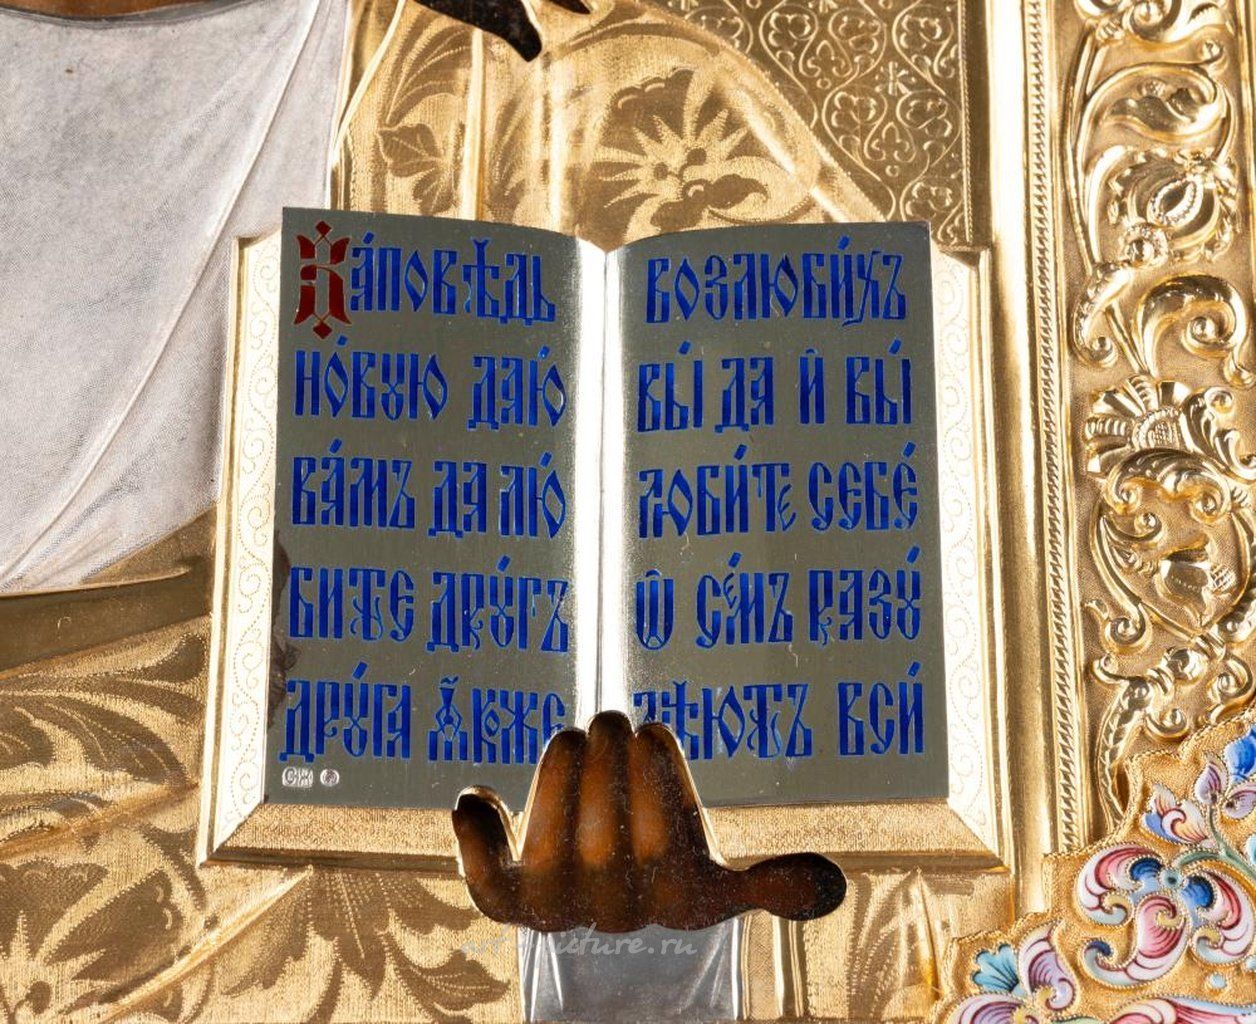 За́повѣдь
но́вую даю́
ва́мъ да лю́
бите дрꙋ́гъ
дрꙋ́га ꙗ҆́коже
возлюби́хъ
вы́ да и҆ вы́
люби́те себѐ
ѡ҆ се́мъ разꙋ́
мѣютъ вси́
art-picture.ru